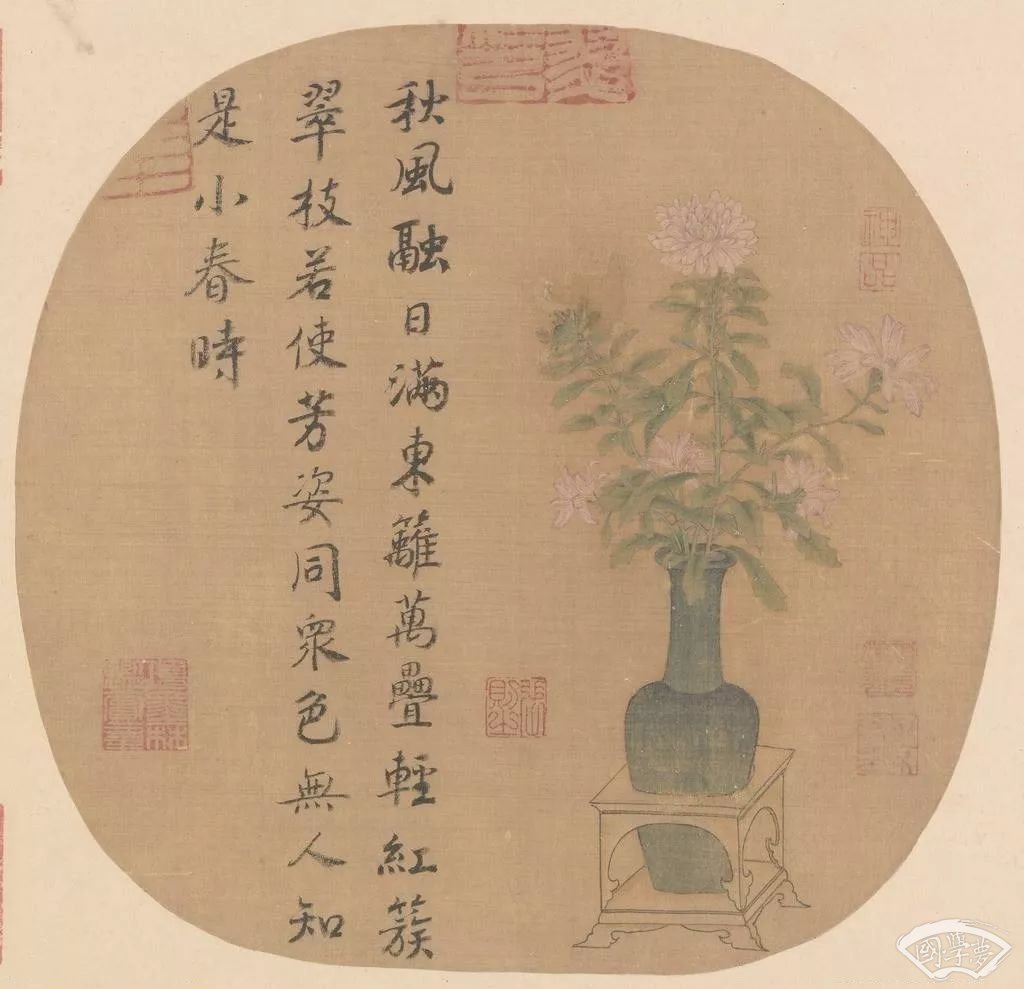 秋風融日滿東籬萬疊輕紅簇
翠枝若使芳姿同衆色無人知
是小春時
國學夢